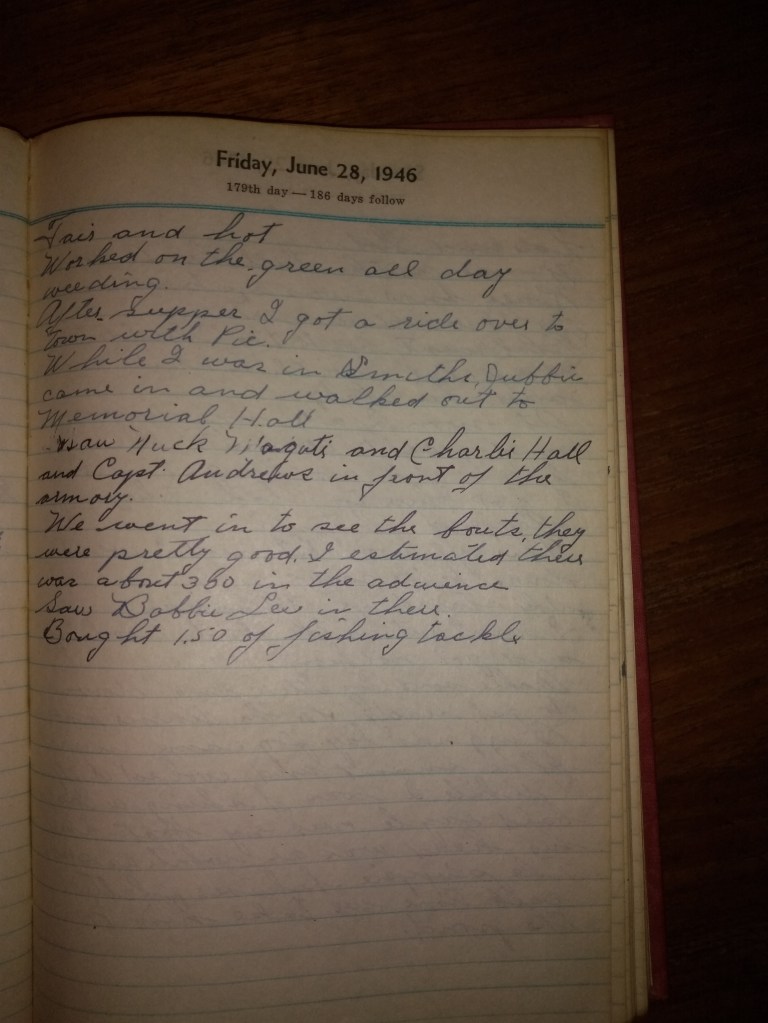 Friday, June 28, 1946
179th day — 186 days follow
Fair and hot
Worked on the green all day
weeding.
After supper I got a ride over to
town with Pie.
While I was in Smiths,
came in and walked out to
Memorial Hall
saw Huck and Charlie Hall
and Capt. Andrews in front of the
armory.
We went in to see the bouts, they
were pretty good. I estimated there
was about 360 in the
Saw Bobbie Lee in there.
Bought 1.50 of fishing tackle